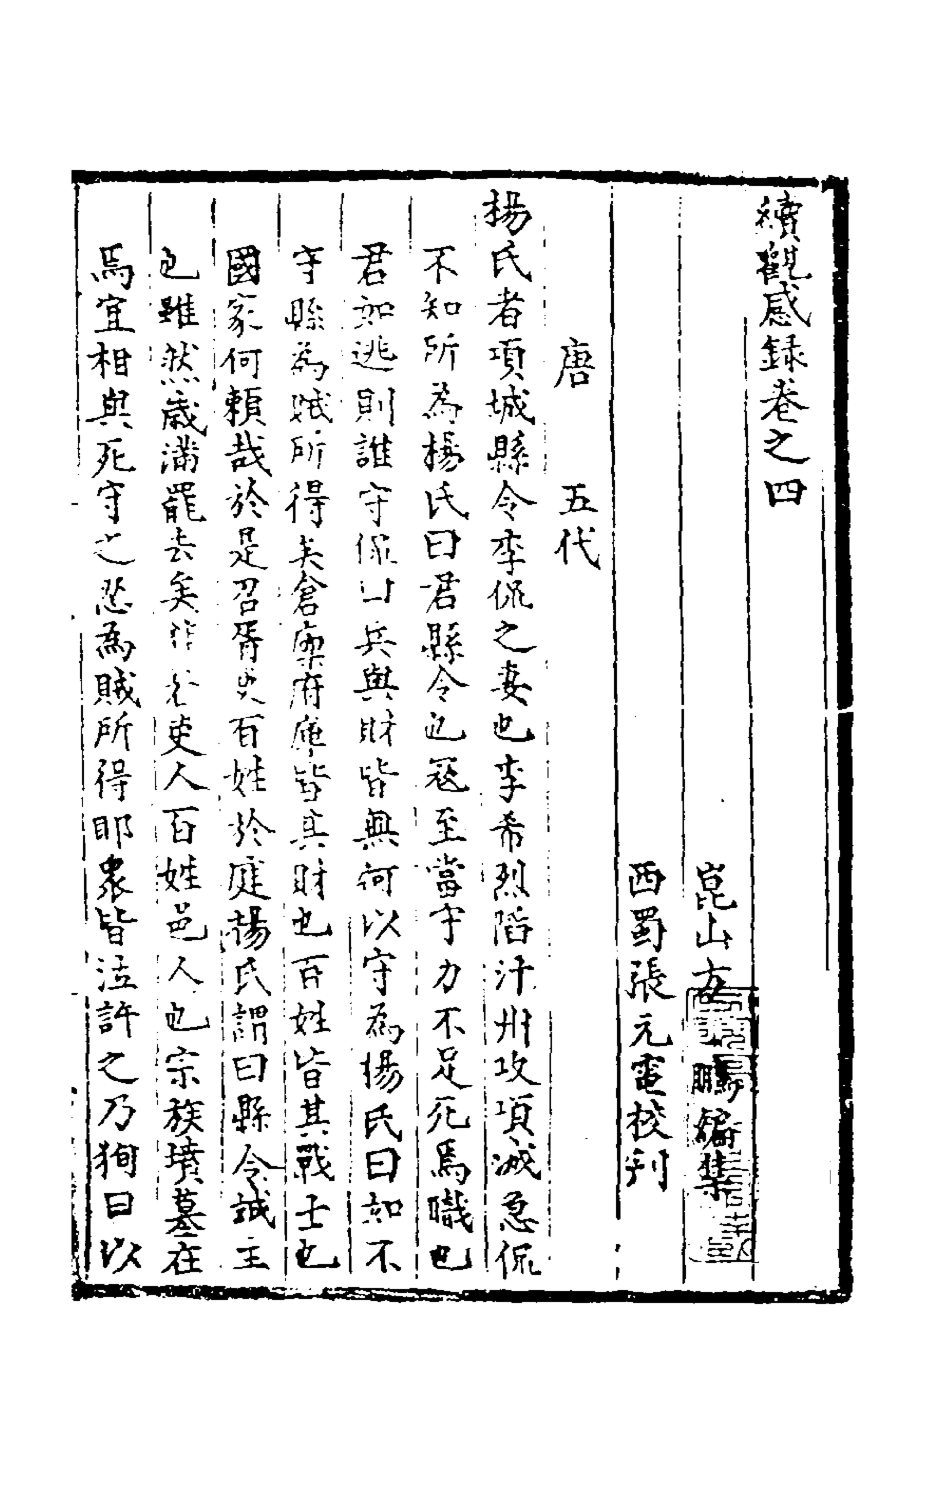 續觀感録卷之四
崑山方鵬編集
西蜀張元電校刋
唐　五代
楊氏者項城縣令李侃之妻也李希烈陷汴州攻項城急侃
不知所為楊氏曰君縣令也冦至當守力不足死焉職也
君如逃則誰守侃曰兵與財皆無何以守為楊氏曰如不
守縣為賊所得矣倉廩府庫皆其財也百姓皆其戰士也
國家何賴哉於是召胥吏百姓於庭楊氏謂曰縣令誠主
也雖然歲滿罷去矣非若吏人百姓邑人也宗族墳墓在
焉宜相與死守之忍為賊所得耶衆皆泣許之乃狥曰以